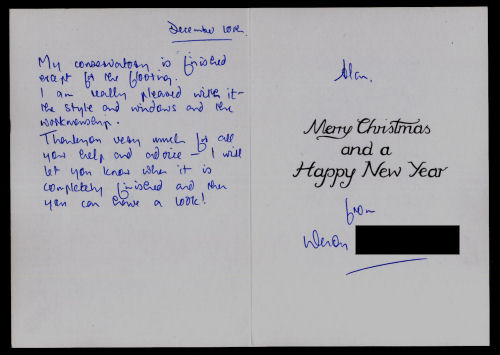 December
My conservatory is finished
except for the flooring.
I am really pleased with it-
the style and windows and the
workmanship.
Thankyou very much for all
your help and advice – I will
let you know when it is
completely finished and then
you can have a look!
Alan.
Merry Christmas
and a
Happy New Year
from